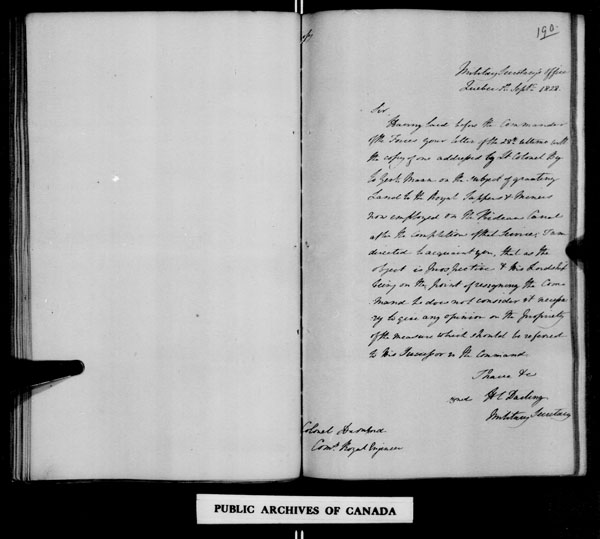 190.
Military Secretary's Office
Quebec Septr. 1828
Sir
Having laid before the Commander
of the Forces your letter of the 28th ultimo with
the copy of one addressed by Lt Colonel By
to Genl. Mann on the subject of granting
Land to the Royal Sappers & Miners
now employed on the Rideau Canal
after the completion of that Service; I am
directed to acquaint you, that as the
object is Prospective & His Lordship
being on the point of resigning the Com-
mand he does not consider it necessa-
ry to give any opinion on the Propriety
of the measure which should be referred
to His Successor in the Command
I have &c
H C Darling
Military Secretary
Colonel Durnford
Comg. Royal Engineer
PUBLIC ARCHIVES OF CANADA